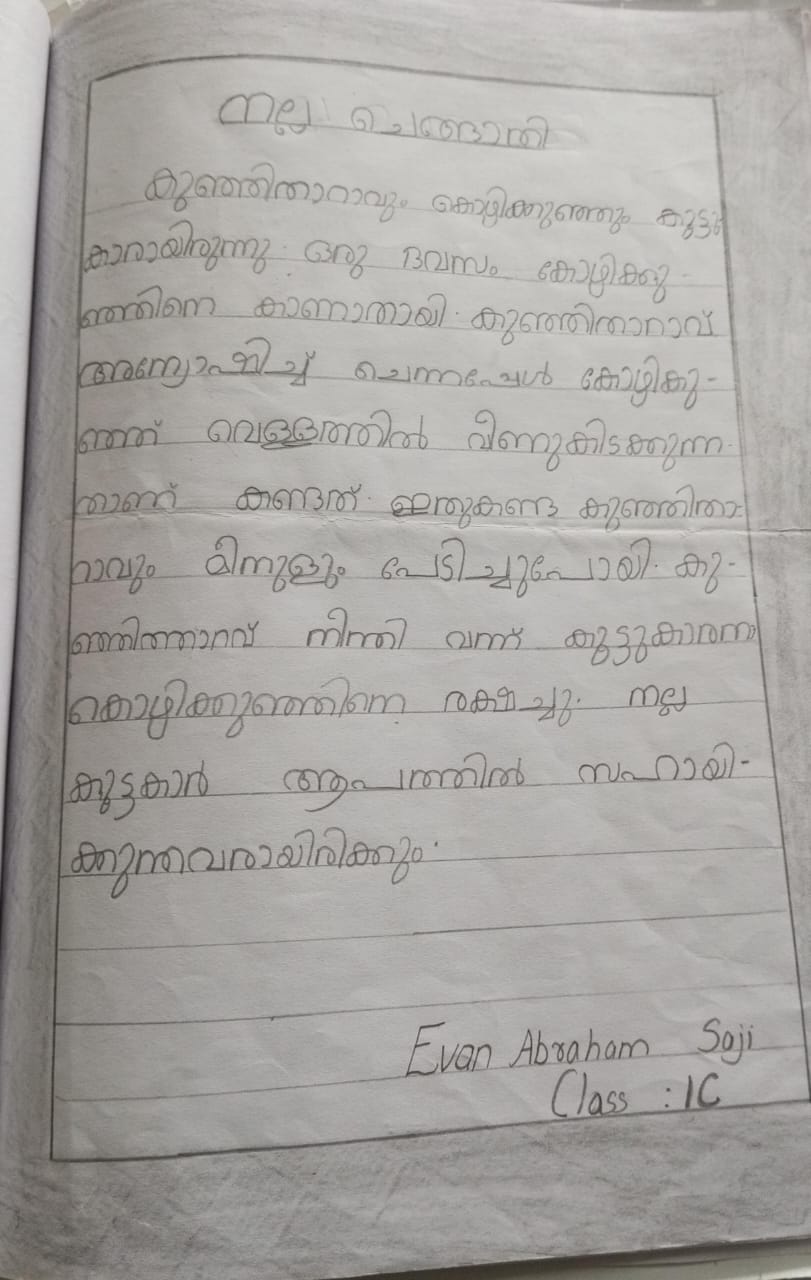 നല്ല ചെങ്ങാതി
കുഞ്ഞിതാറാവും കൊഴിക്കുഞ്ഞും കൂട്ടു
കാരായിരുന്നു. ഒരു ദിവസം കോഴിക്കു-
ഞ്ഞിനെ കാണാതായി. കുഞ്ഞിതാറാവ്
അന്വേഷിച്ച് ചെന്നപ്പോൾ കോഴികു-
ഞ്ഞ് വെള്ളത്തിൽ വീണുകിടക്കുന്ന
താണ് കണ്ടത്. ഇതുകണ്ട കുഞ്ഞിതാ-
റാവും മീനുളും പേടിച്ചുപോയി. കു-
ഞ്ഞിത്താറവ് നീന്തി വന്ന് കൂട്ടുകാരന
കൊഴിക്കുഞ്ഞിനെ രക്ഷിച്ചു. നല്ല
കൂട്ടകാർ ആപത്തിൽ സഹായി-
ക്കുന്നവരായിരിക്കും.
Evan Abraham Saji
Class : 1C